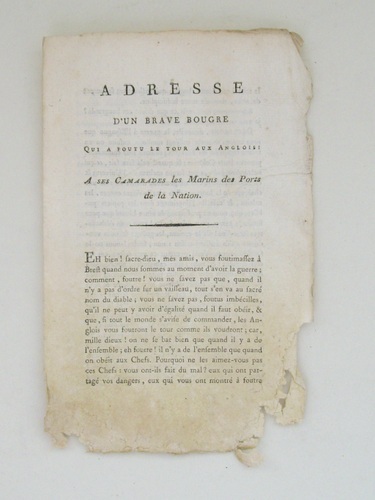 ADRESSE
D'UN BRAVE BOUGRE
QUI A FOUTU LE TOUR AUX ANGLOIS:
A SES CAMARADES les Marins des Ports
de la Nation.
EH bien! sacre-dieu, mes amis, vous foutimassez à
Brest quand nous sommes au moment d'avoir la guerre;
comment, foutre! vous ne savez pas que, quand il
n'y a pas d'ordre sur un vaisseau, tout s'en va au sacré
nom du diable; vous ne savez pas, foutus imbécilles,
qu'il ne peut y avoir d'égalité quand il faut obéir, &
que, si tout le monde s'avise de commander, les An-
glois vous foutront le tour comme ils voudront; car,
mille dieux! on ne se bat bien que quand il y a de
l'ensemble; eh foutre! il n'y a de l'ensemble que quand
on obéit aux Chefs. Pourquoi ne les aimez-vous pas
ces Chefs: vous ont-ils fait du mal? eux qui ont par-
tagé vos dangers, eux qui vous ont montré à foutre